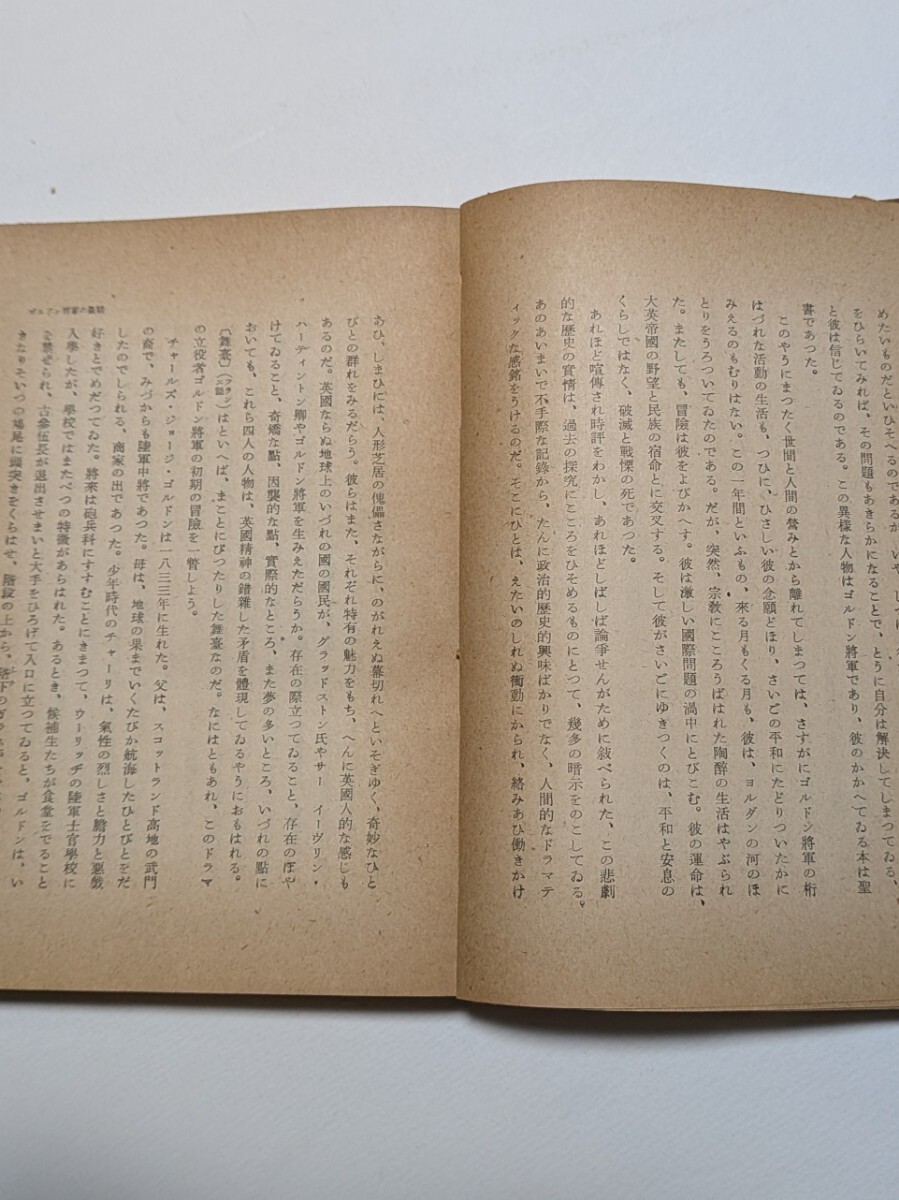 めたいものだといひそへるのであるが、いや、
をひらいてみれば、その問題もあきらかになることで、とうに自分は解決してしまつてゐる、
と彼は信じてゐるのである。この異樣な人物はゴルドン將軍であり、彼のかかへてゐる本は聖
書であつた。
このやうにまつたく世間と人間の營みとから離れてしまつては、さすがにゴルドン將軍の桁
はづれな活動の生活も、つひに、ひさしい彼の念願どほり、さいごの平和にたどりついたかに
みえるのもむりはない。この一年間といふもの、來る月もくる月も、彼は、ヨルダンの河のほ
とりをうろついてゐたのである。だが、突然、宗敎にこころうばはれた陶醉の生活はやぶられ
た。またしても、冒險は彼をよびかへす。彼は激しい國際問題の渦中にとびこむ。彼の運命は、
大英帝國の野望と民族の宿命とに交叉する。そして彼がさいごにゆきつくのは、平和と安息の
くらしではなく、破滅と戰慄の死であつた。
あれほど喧傳され時評をわかし、あれほどしばしば論爭せんがために敍べられた、この悲劇
的な歷史の實情は、過去の探究にこころをひそめるものにとつて、幾多の暗示をのこしてゐる。
あのあいまいで不手際な記錄から、たんに政治的歷史的興味ばかりでなく、人間的なドラマテ
ィックな感銘をうけるのだ。そこにひとは、えたいのしれぬ衝動にかられ、絡みあひ働きかけ
あひ、しまひには、人形芝居の傀儡さながらに、のがれえぬ幕切れへといそぎゆく、奇妙なひと
びとの群れをみるだらう。彼らはまた、それぞれ特有の魅力をもち、へんに英國人的な感じも
あるのだ。英國ならぬ地球上のいづれの國の國民が、グラッドストン氏やサー イーヴリン・
ハーディントン卿やゴルドン將軍を生みえただらうか。存在の際立つてゐること、存在のぼや
けてゐること、奇矯な點、因襲的な點、實際的なところ、また夢の多いところ、いづれの點に
おいても、これら四人の人物は、英國精神の錯雜した矛盾を體現してゐるやうにおもはれる。
〔舞臺〕はといへば、まことにぴつたりした舞臺なのだ。なにはともあれ、このドラマ
の立役者ゴルドン將軍の初期の冒險を一瞥しよう。
チャールズ・ジョージ・ゴルドンは一八三三年に生れた。父は、スコットランド高地の武門
の裔で、みづからも陸軍中將であつた。母は、地球の果までいくたびか航海したひとびとをだ
したのでしられる、商家の出であつた。少年時代のチャーリは、氣性の烈しさと膽力と惡戲
好きとでめだつてゐた。將來は砲兵科にすすむことにきまつて、ウーリッヂの陸軍士官學校に
入學したが、學校ではまたべつの特徵があらはれた。あるとき、候補生たちが食堂をでること
を禁ぜられ、古參伍長が退出させまいと大手をひろげて入口に立つてゐると、ゴルドンは、い
きなりそいつの鳩尾に頭突きをくらはせ、階段の上から、
ゴルドン將軍の最期